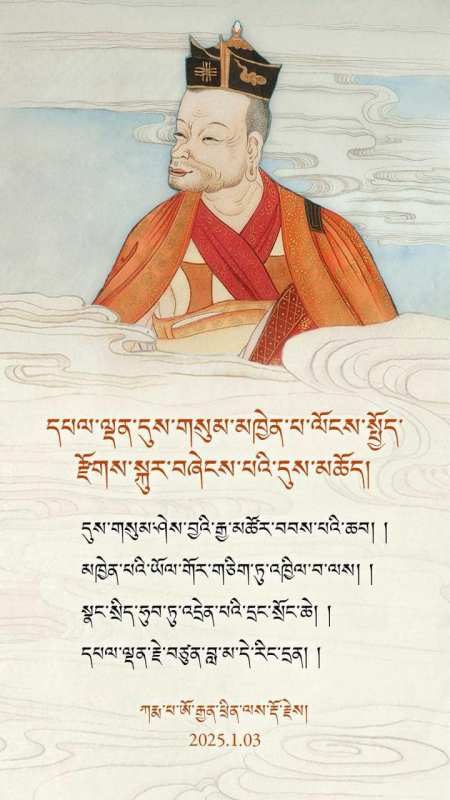 དཔལ་ལྡན་དུས་གསུམ་མཁྱེན་པ་ལོངས་སྤྱོད་
རྫོགས་སྐུར་བཞེངས་པའི་དུས་མཆོད།
དུས་གསུམ་ཤེས་བྱའི་རྒྱ་མཚོར་བབས་པའི་ཆབ། །
མཁྱེན་པའི་ཡོལ་གོར་གཅིག་ཏུ་འཁྱིལ་བ་ལས། །
སྣང་སྲིད་ཧུབ་ཏུ་འདྲེན་པའི་དྲང་སྲོང་ཆེ། །
དཔལ་ལྡན་རྗེ་བཙུན་བླ་མ་དེ་རིང་དྲན། །
ཀརྨ་པ་ཨོ་རྒྱན་ཕྲིན་ལས་རྡོ་རྗེས།
2025.1.03